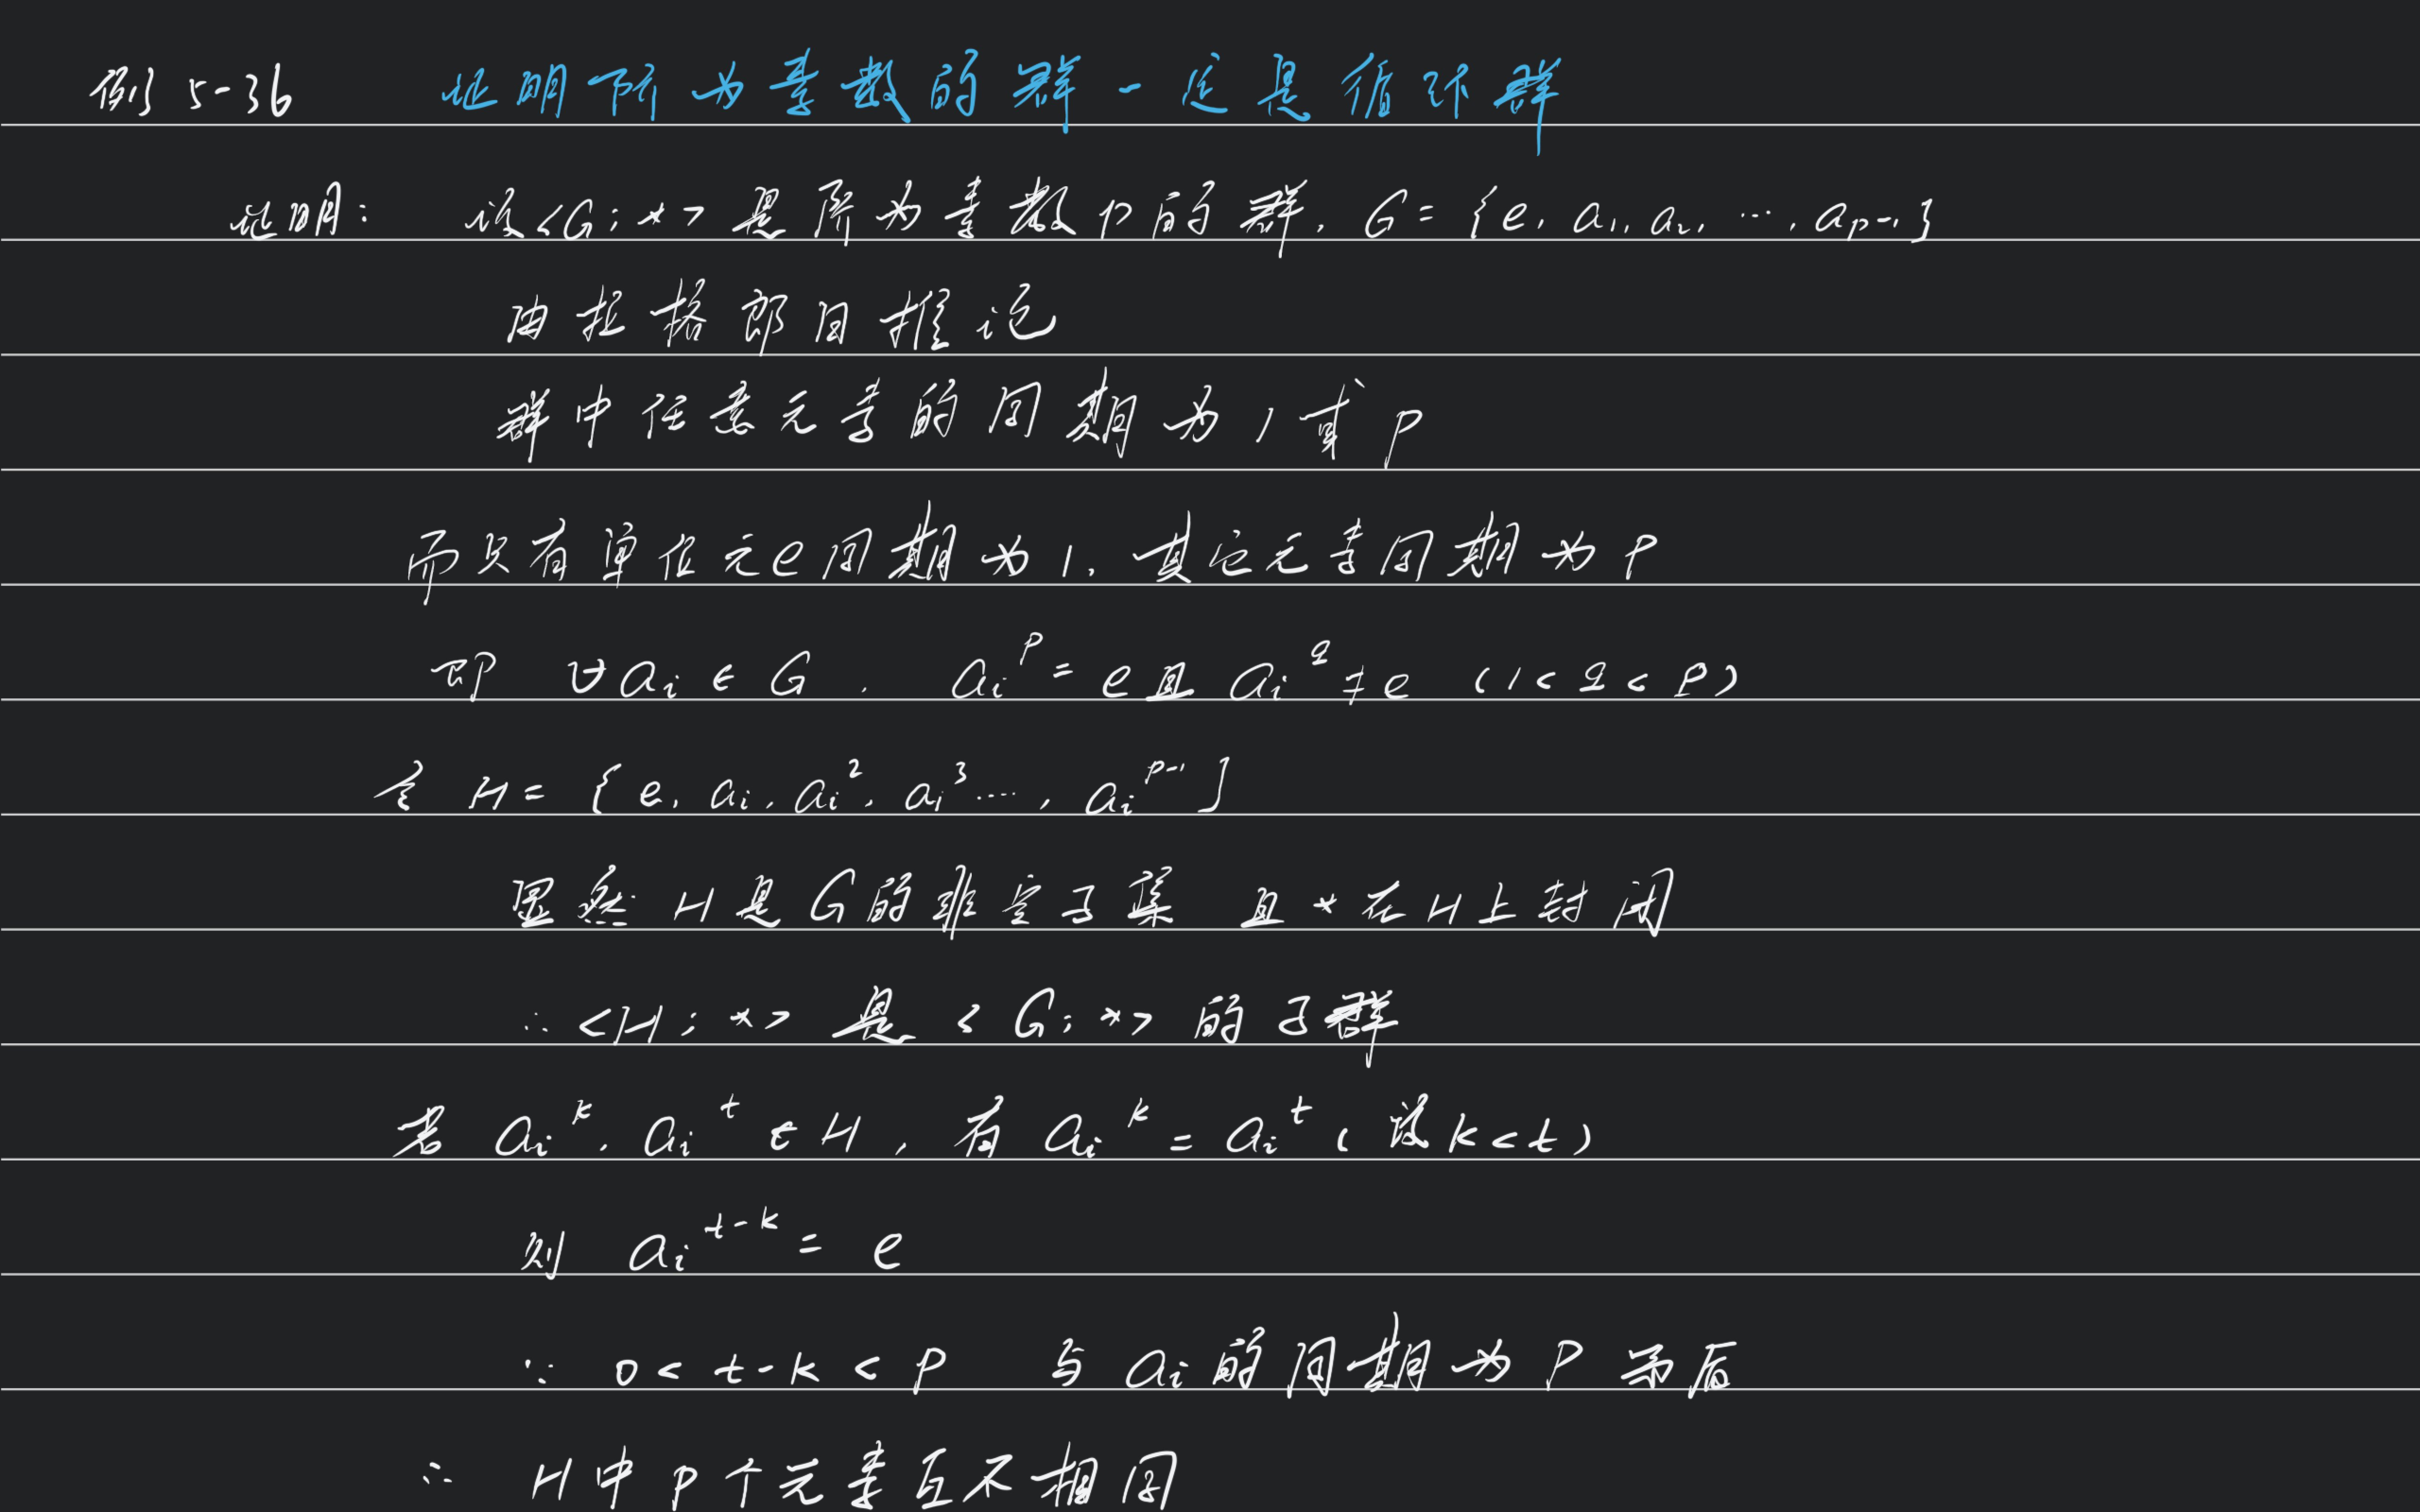 例 5-36 证明阶为素数的群一定是循环群
证明: 设<G;*>是阶为素数p的群. G={e, a₁, a₂, …, aₚ₋₁}
由拉格朗日推论
群中任意元素的周期为1或p
而只有单位元e周期为1. 其它元素周期为p
即 ∀aᵢ∈G, aᵢᵖ=e且 aᵢ^q≠e (1<q<p)
令 H={e, aᵢ, aᵢ², aᵢ³…, aᵢᵖ⁻¹}
显然 H是G的非空子集 且*在H上封闭
∴ <H;*> 是 <G;*> 的子群
若 aᵢᵏ, aᵢᵗ∈H, 有 aᵢᵏ=aᵢᵗ (设k<t)
则 aᵢᵗ⁻ᵏ=e
∵ 0<t-k<p 与aᵢ的周期为p矛盾
∴ H中p个元素互不相同